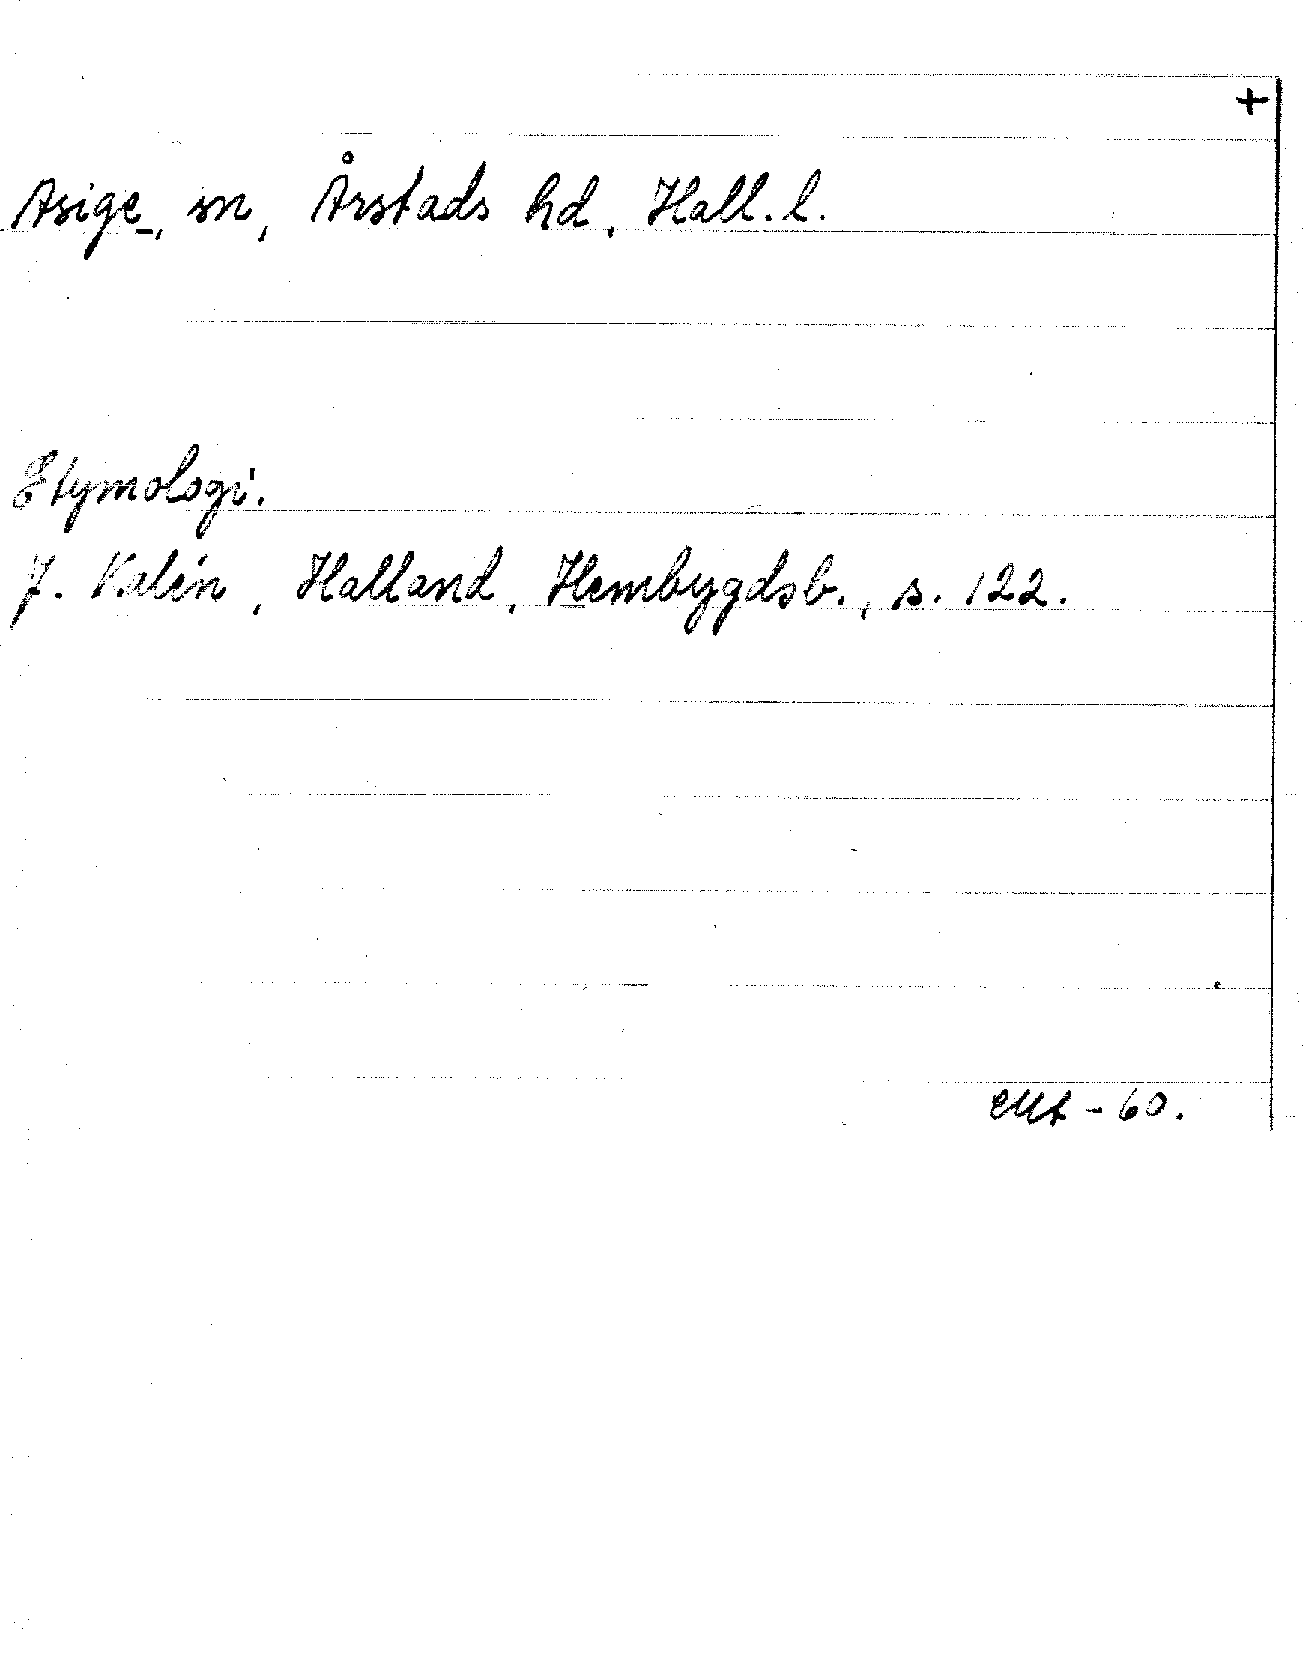 +
Asige, sn, Årstads hd, Hall. l.
Etymologi.
J. Kalén, Halland, Hembygdsb., s. 122.
- 60.